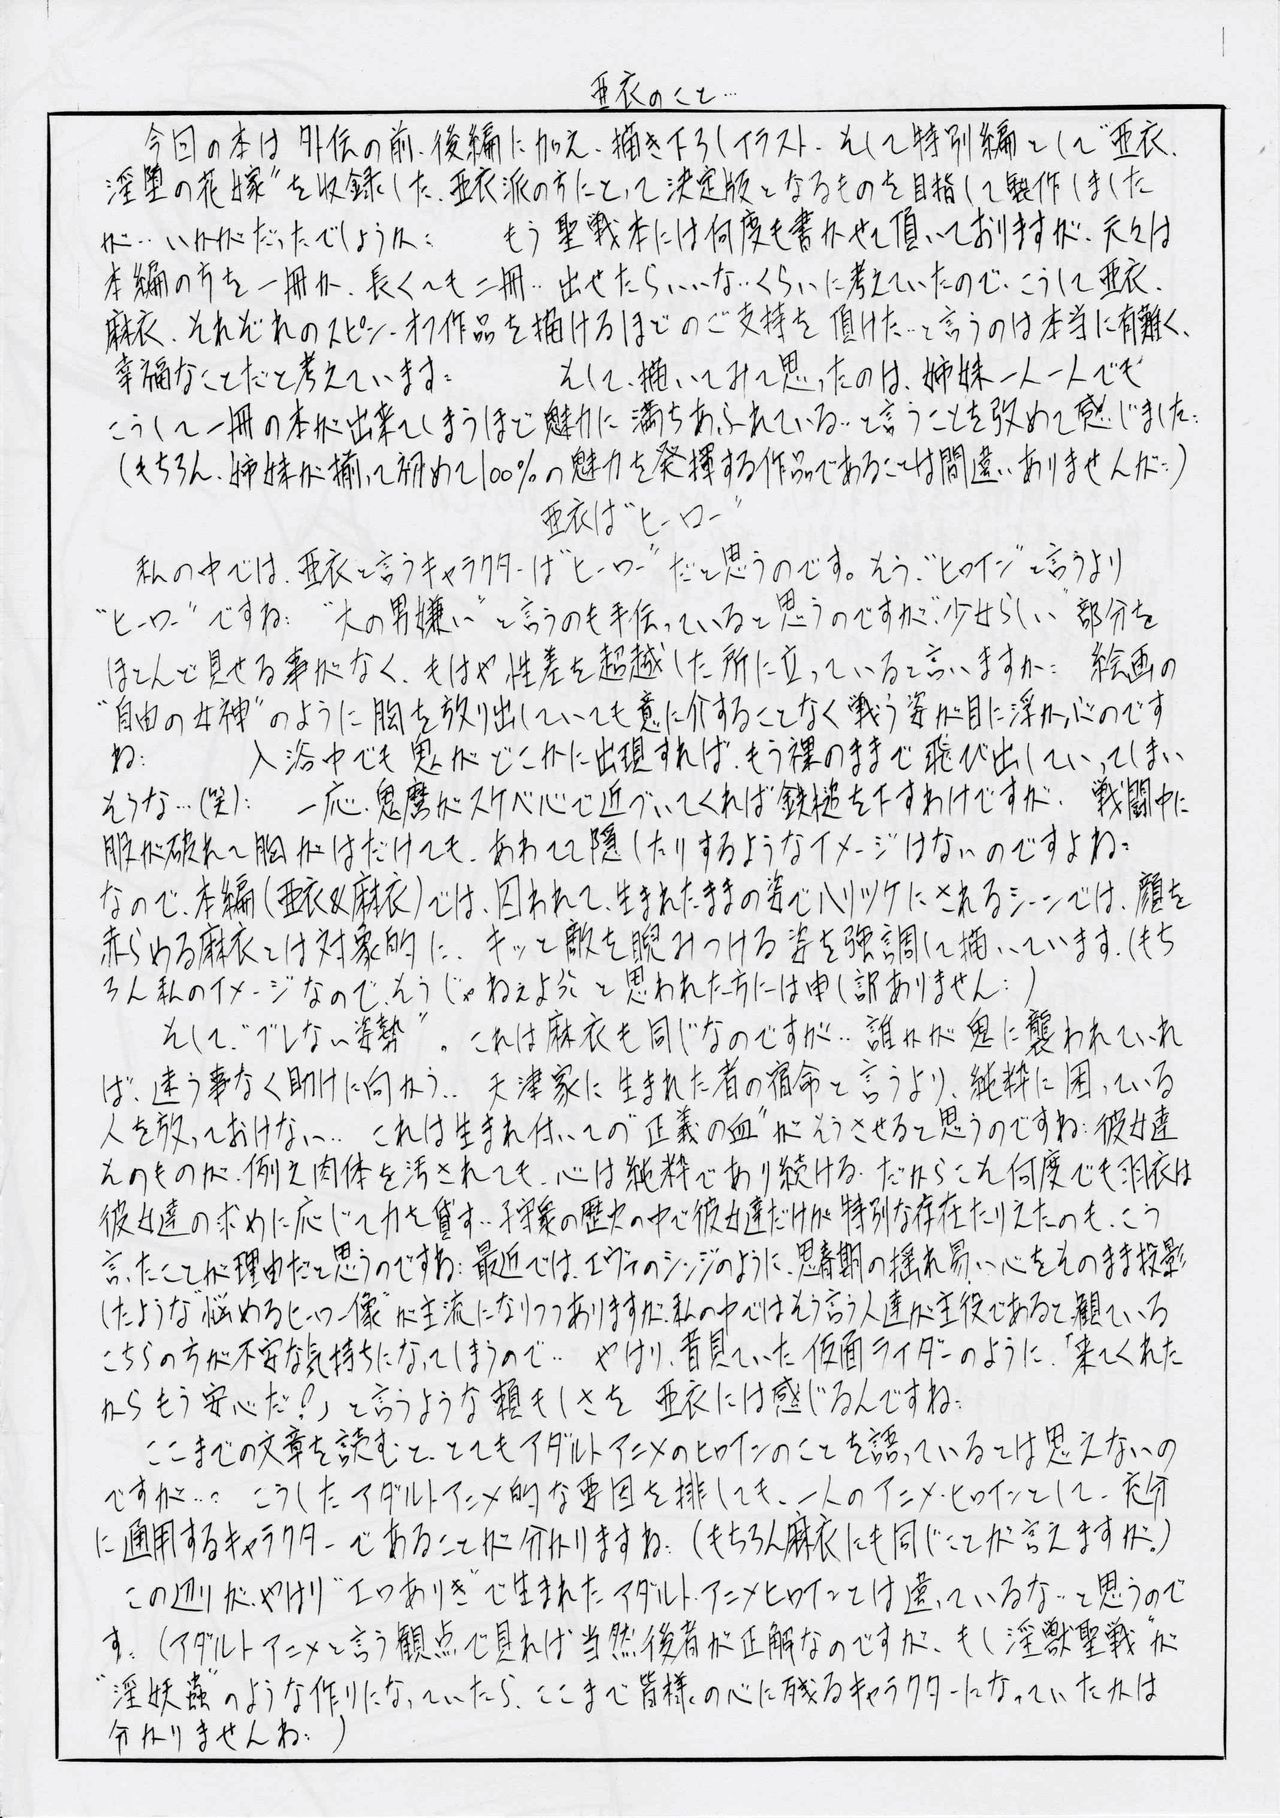 亜衣のこと…
今回の本は外伝の前、後編に加え、描き下ろしイラスト、そして特別編として"亜衣、
淫堕の花嫁"を収録した、亜衣派の方にとって決定版となるものを目指して製作しました
が…いかがだったでしょうか… もう聖戦本には何度も書かせて頂いておりますが、元々は
本編の方を一冊か、長くても二冊…出せたらいいな…くらいに考えていたので、こうして亜衣、
麻衣、それぞれのスピン・オフ作品を描けるほどのご支持を頂けた…と言うのは本当に有難く、
幸福なことだと考えています… そして、描いてみて思ったのは、姉妹一人一人でも
こうして一冊の本が出来てしまうほど魅力に満ちあふれている…と言うことを改めて感じました…
(もちろん、姉妹が揃って初めて100%の魅力を発揮する作品であることは間違いありませんが…)
亜衣は"ヒーロー"
私の中では、亜衣と言うキャラクターは"ヒーロー"だと思うのです。そう、"ヒロイン"と言うより
"ヒーロー"ですね… "大の男嫌い"と言うのも手伝っていると思うのですが、"少女らしい"部分を
ほとんど見せる事がなく、もはや性差を超越した所に立っていると言いますか… 絵画の
"自由の女神"のように胸を放り出していても意に介することなく戦う姿が目に浮かぶのです
ね… 入浴中でも鬼がどこかに出現すれば、もう裸のままで飛び出していってしまい
そうな…(笑)… 一応、鬼麿がスケベ心で近づいてくれば鉄槌を下すわけですが、戦闘中に
服が破れて胸がはだけても、あわてて隠したりするようなイメージはないのですよね…
なので、本編(亜衣&麻衣)では、囚われて、生まれたままの姿でハリツケにされるシーンでは、顔を
赤らめる麻衣とは対象的に、キッと敵を睨みつける姿を強調して描いています。(もち
ろん私のイメージなので、そうじゃねぇよ！と思われた方には申し訳ありません…)
そして、"ブレない姿勢"。これは麻衣も同じなのですが…誰かが鬼に襲われていれ
ば、迷う事なく助けに向かう… 天津家に生まれた者の宿命と言うより、純粋に困っている
人を放っておけない… これは生まれ付いての"正義の血"がそうさせると思うのですね… 彼女達
そのものが、例え肉体を汚されても、心は純粋であり続ける、だからこそ何度でも羽衣は
彼女達の求めに応じて力を貸す… 子守衆の歴史の中で彼女達だけが特別な存在たりえたのも、こう
言ったことが理由だと思うのですね… 最近では、エヴァのシンジのように、思春期の揺れ易い心をそのまま投影
したような"悩めるヒーロー像"が主流になりつつありますが、私の中ではそう言う人達が主役であると、観ている
こちらの方が不安な気持ちになってしまうので… やはり、昔見ていた仮面ライダーのように、「来てくれた
からもう安心だ！」と言うような頼もしさを亜衣には感じるんですね…
ここまでの文章を読むと、とてもアダルトアニメのヒロインのことを語っているとは思えないの
ですが…… こうしたアダルトアニメ的な要因を排しても、一人のアニメ・ヒロインとして、充分
に通用するキャラクターであることが分かりますね… (もちろん麻衣にも同じことが言えますが。)
この辺りが、やはり"エロありき"で生まれたアダルト・アニメヒロインとは違っているな…と思うので
す… (アダルトアニメと言う観点で見れば当然後者が正解なのですが、もし"淫獣聖戦"が
"淫妖蟲"のような作りになっていたら、ここまで皆様の心に残るキャラクターになっていたかは
分かりませんね…)